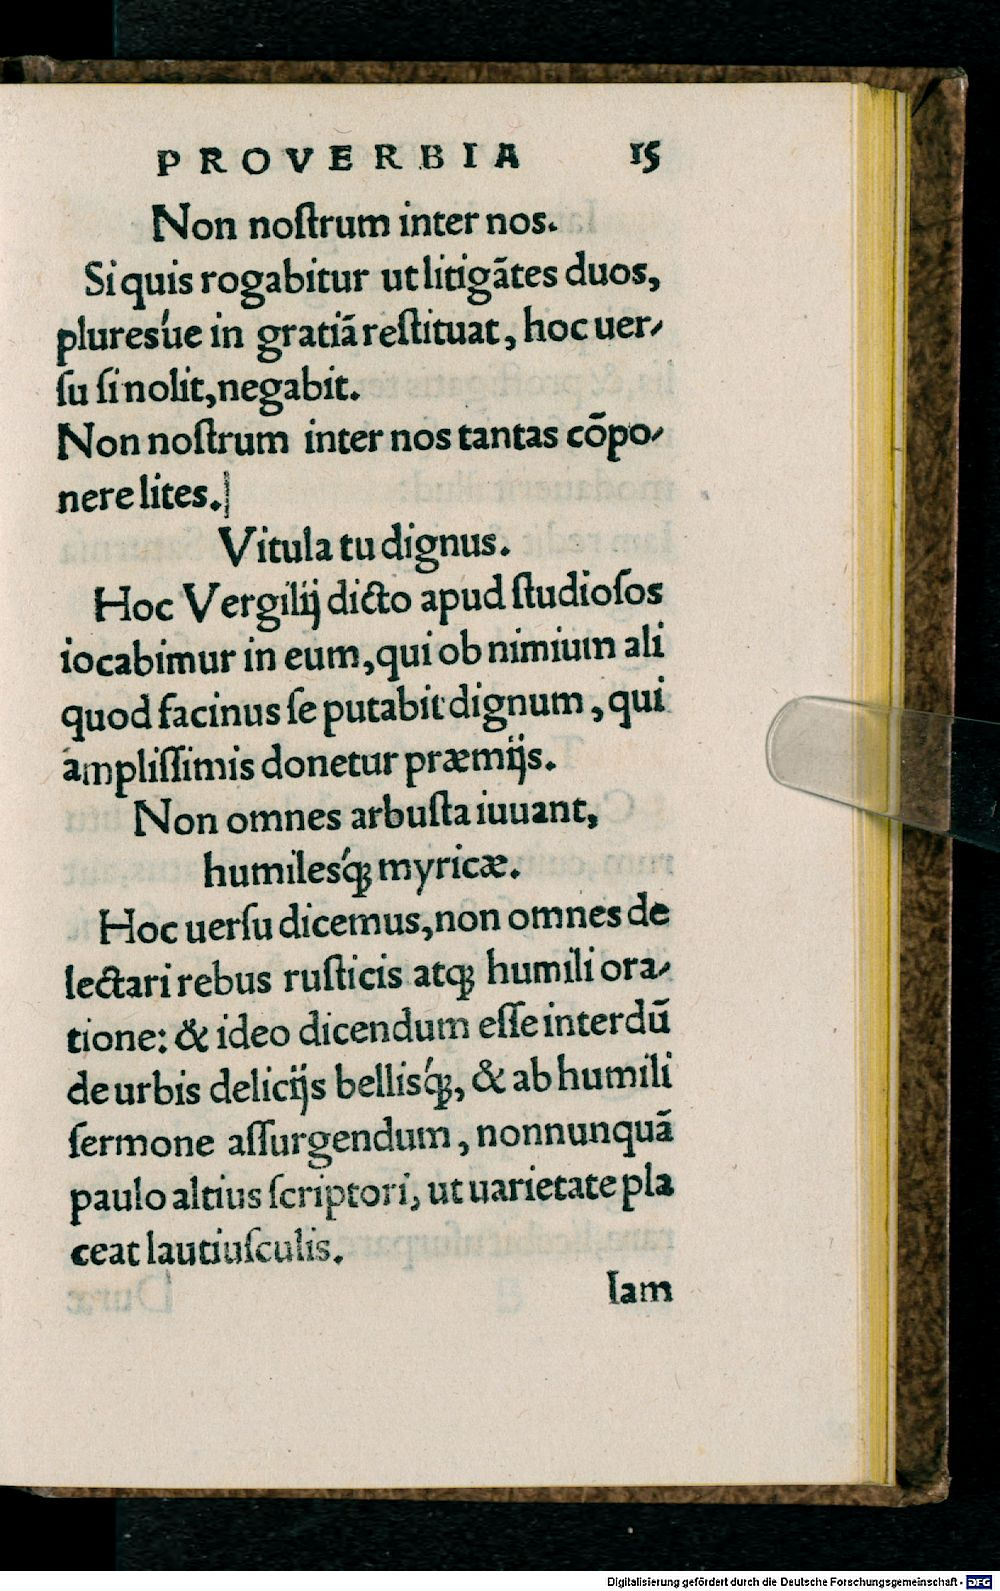 PROVERBIA 15
Non noſtrum inter nos.
Si quis rogabitur ut litigātes duos,
plureśue in gratiā reſtituat, hoc uer-
ſu ſi nolit, negabit.
Non noſtrum inter nos tantas cōpo-
nere lites.
Vitula tu dignus.
Hoc Vergilij dicto apud ſtudioſos
iocabimur in eum, qui ob nimium ali
quod facinus ſe putabit dignum, qui
ampliſſimis donetur præmijs.
Non omnes arbuſta iuuant,
humileśꝗ; myricæ.
Hoc uerſu dicemus, non omnes de
lectari rebus ruſticis atꝗ; humili ora-
tione: & ideo dicendum eſſe interdū
de urbis delicijs belliśꝗ;, & ab humili
ſermone aſſurgendum, nonnunquā
paulo altius ſcriptori, ut uarietate pla
ceat lautiuſculis.
Iam
Digitalisierung gefördert durch die Deutsche Forschungsgemeinschaft - DFG